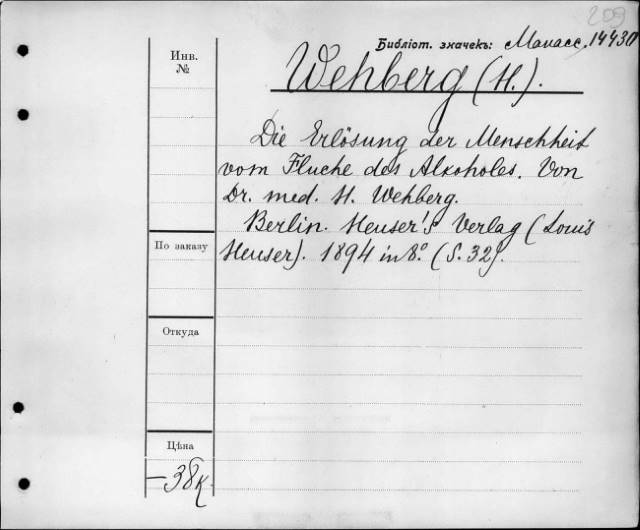 209
Библіот. значекъ: Манасс. 14430
Инв.
№
Wehberg (H.).
Die Erlösung der Menschheit
vom Fluche des Alkoholes. Von
Dr. med. H. Wehberg.
Berlin. Heuser's Verlag (Louis
Heuser). 1894 in 8.° (S. 32).
По заказу
Откуда
Цѣна
–38к